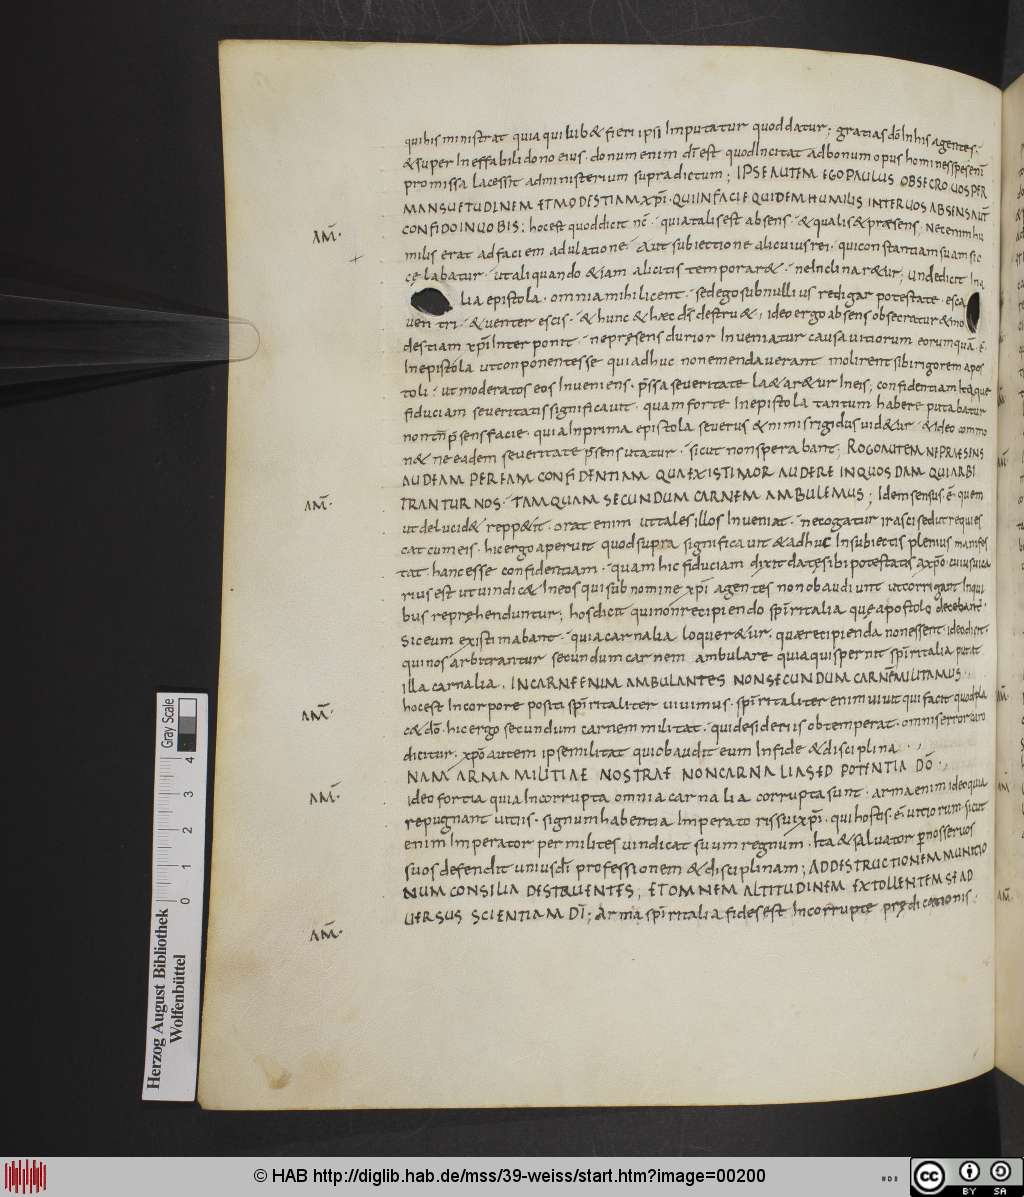 qui his ministrat quia qui iub& fieri ipsi Imputatur quod datur; gratias dō In his agentes.
& super Ineffabili dono eius · donum enim dī est quod Incitat ad bonum opus homines spe seni
promissa lacessit ad ministerium supra dictum; IPSE AUTEM EGO PAULUS OBSECRO UOS PER
MANSUETUDINEM ET MODESTIAM XPI · QUI IN FACIE QUIDEM HUMILIS INTER UOS ABSENS AUT
AM̄·
CONFIDO IN UOBIS; hoc est quod dicit nc̄ · quia talis est absens · & qualis & præsens, Nec enim hu
milis erat ad faciem adulatione · Aut subiectione alicuius rei · qui constantiam suam sic
cęlabatur · ut aliquando & iam alicitis temporar& · ne Inclinar&ur; Unde dicit In a
lia epistola · omnia mihi licent · sed ego sub nullius redigar potestate · esca
uentri · & uenter escis · & hunc & hæc dī destru&, ideo ergo absens obsecratur & mo
destiam xpī Inter ponit · ne pręsens durior Inueniatur causa uitiorum eorum quā ·ē·
In epistola ut conponentesse qui adhuc non emendauerant molirent sibi rigorem apos
toli · ut moderatos eos Inueniens · p̄ssa seueritate la&ar&ur In eis, confidentiam Itaque
fiduciam seueritatis significauit · quam forte In epistola tantum habere putabatur
non tn̄ p̄sens facie · quia In prima epistola seuerus & nimis rigidus uid&ur · & ideo commo
n& ne eadem seueritate p̄sens utatur · sicut non sperabant; ROGO AUTEM NE PRAESENS
AUDEAM PER EAM CONFIDENTIAM QUA EXISTIMOR AUDERE IN QUOSDAM QUI ARBI
AM̄·
TRANTUR NOS · TAMQUAM SECUNDUM CARNEM AMBULEMUS; Idem sensus ·ē· quem
ut delucid& repp&it · orat enim ut tales illos Inueniat · ne cogatur irasci sed ut requies
cat cum eis · hic ergo aperuit quod supra significauit & adhuc In subiectis plenius manifes
tat · hanc esse confidentiam · quam hic fiduciam dixit datę sibi potestatis a xpō cuius uica
rius est ut uindic& In eos qui sub nomine xpī agentes non obaudiunt ut corrigant In qui
bus repręhenduntur; hos dicit qui non recipiendo spīritalia quę apostolo decebant̄·
Sic eum existimabant · quia carnalia loquer&ur · quæ recipienda non essent · ideo dicit·
qui nos arbitrantur secundum carnem ambulare quia qui spernit spīritalia putat
illa carnalia. IN CARNE ENIM AMBULANTES NON SECUNDUM CARNĒ MILITAMUS
AM̄·
hoc est In corpore positi spīritaliter uiuimus · spīritaliter enim uiuit qui facit quod pla
c& dō · hic ergo secundum carnem militat · qui desideriis obtemperat · omnis error caro
dicitur · xpō autem ipse militat qui obaudit eum In fide & disciplina ·,
NAM ARMA MILITIAE NOSTRAE NON CARNALIA SED POTENTIA DŌ·,
AM̄·
ideo fortia quia Incorrupta omnia carnalia corrupta sunt · arma enim ideo quia
repugnant uitiis · signum habentia Imperatoris sui xpī · qui hostis ·ē· uitiorum · sicut
enim Imperator per milites uindicat suum regnum · Ita & saluator p̄ nos seruos
suos defendit unius dī professionem & disciplinam; AD DESTRUCTIONEM MUNITIO
NUM CONSILIA DESTRUENTES; ET OMNEM ALTITUDINEM EXTOLLENTEM SE AD
AM̄·
UERSUS SCIENTIAM DĪ; Arma spīritalia fides est Incorruptę prędicationis·
Herzog August Bibliothek
Wolfenbüttel
Gray Scale
0 1 2 3 4
© HAB http://diglib.hab.de/mss/39-weiss/start.htm?image=00200
cc BY SA